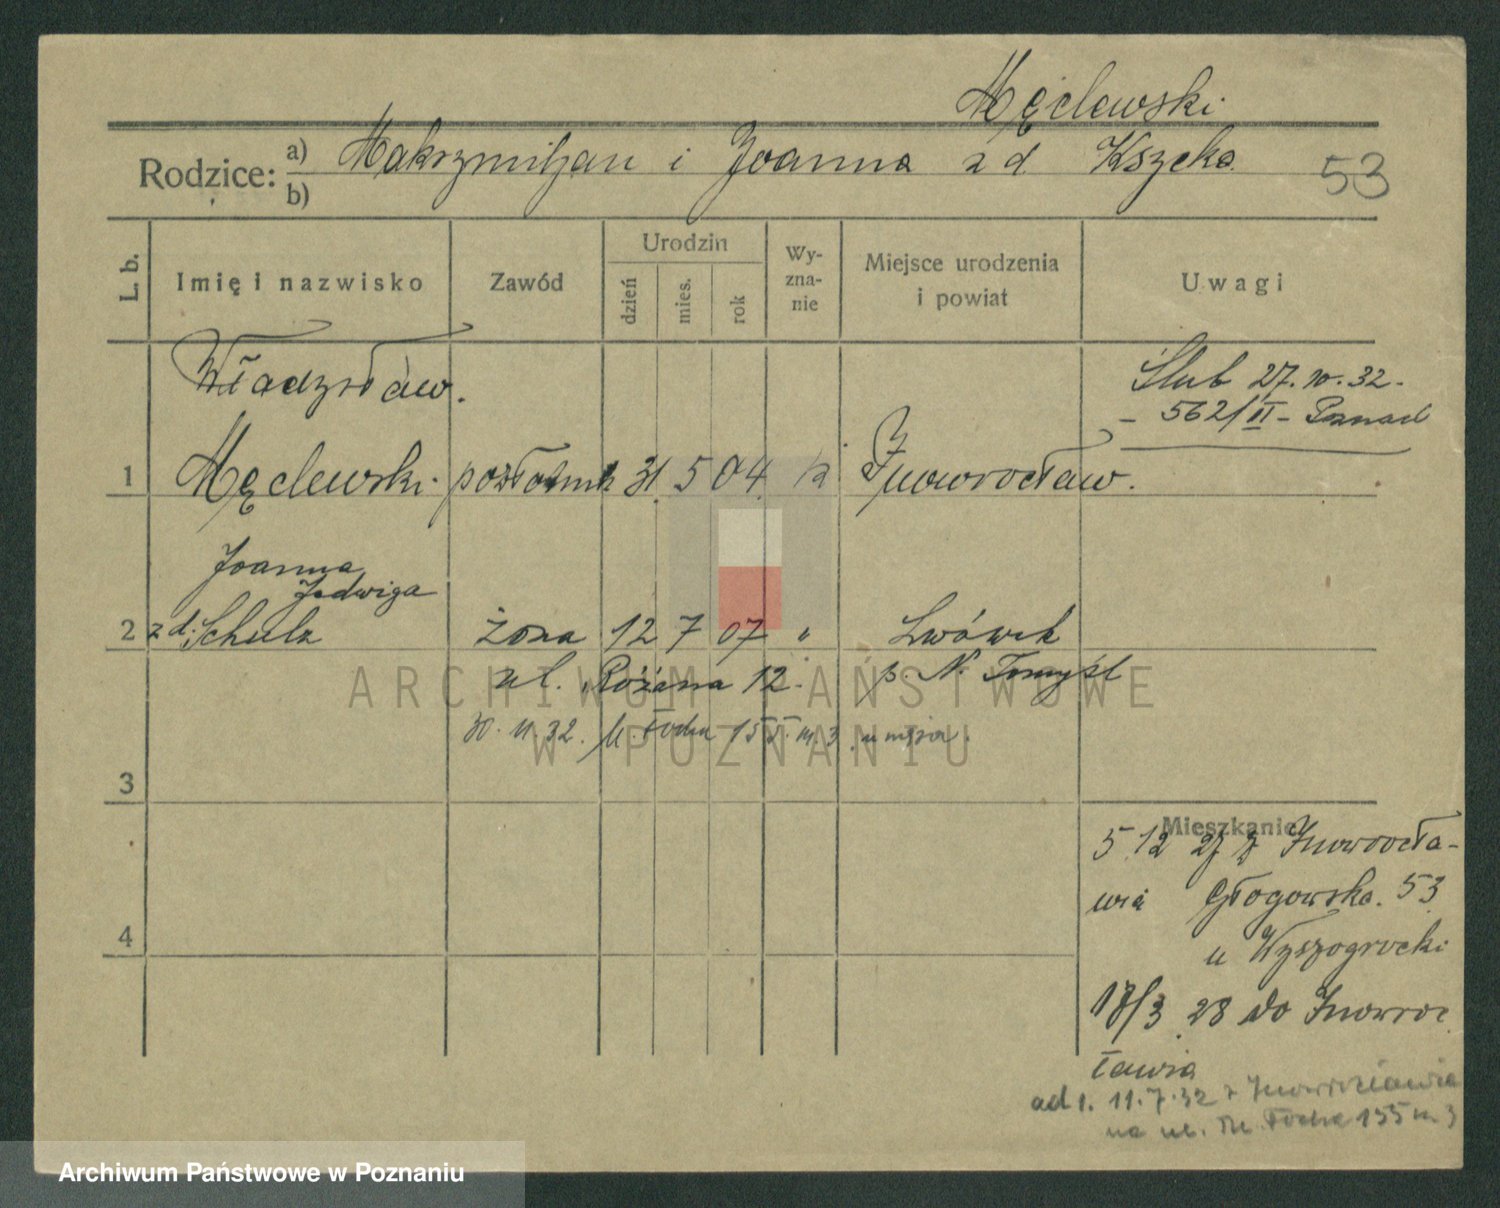 Męclewski
Rodzice: a) Maksymiljan i Joanna zd Kszeka
b)
53
L. b.
Imię i nazwisko
Zawód
Urodzin
dzień
mies.
rok
Wy-
zna-
nie
Miejsce urodzenia
i powiat
Uwagi
Władysław.
Ślub 27.10.32.
- 562/II -
1 Męclewski pozłotnik 31 5 04 Inowrocław.
Joanna
Jadwiga
2 z d. Schulz żona 12 7 07 " Lwówek
ul. Różana 12. p. N. Tomyśl
30.11.32. M. Focha 155 m. 3
3
Mieszkanie
5 12 27 z Inowrocła-
wia Głogowska 53
u Wyszogrocki
4
18/3 28 do Inowroc
ławia
ad 1. 11.7.32 z Inowrocławia
na ul. M. Focha 155 m 3
ARCHIWUM PAŃSTWOWE
W POZNANIU
Archiwum Państwowe w Poznaniu